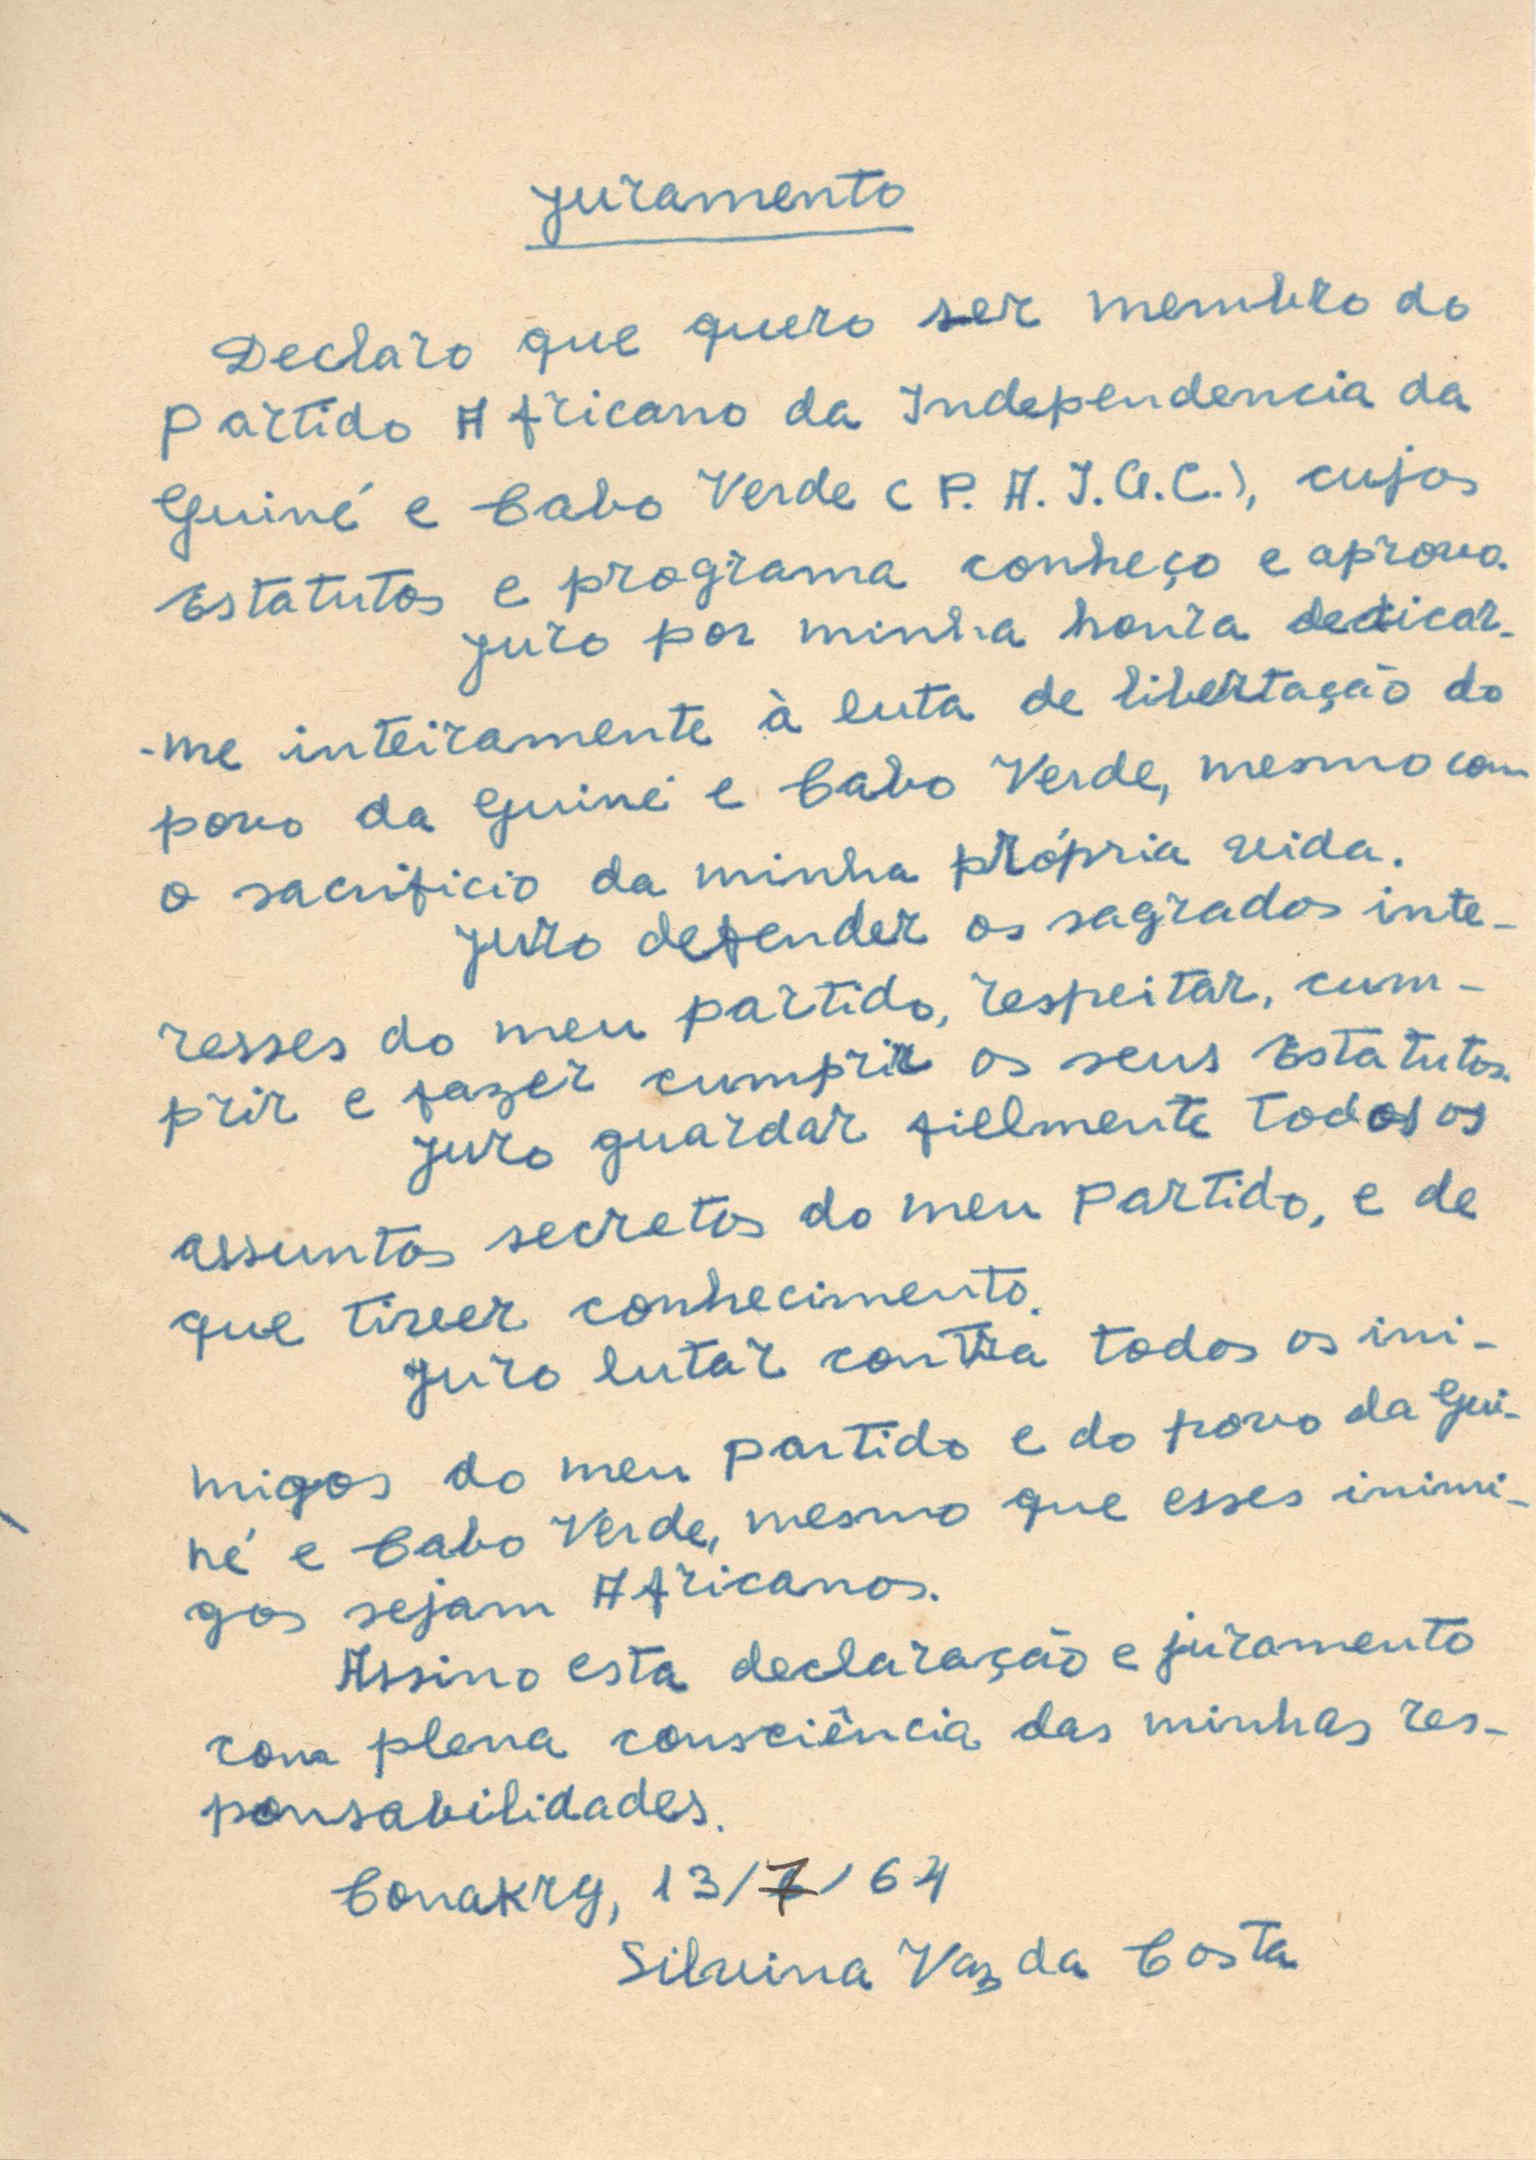 Juramento
Declaro que quero ser membro do
Partido Africano da Independencia da
Guiné e Cabo Verde (P.A.I.G.C.), cujos
Estatutos e programa conheço e aprovo.
Juro por minha honra dedicar-
-me inteiramente à luta de libertação do
povo da Guiné e Cabo Verde, mesmo com
o sacrificio da minha própria vida.
Juro defender os sagrados inte-
resses do meu partido, respeitar, cum-
prir e fazer cumprir os seus Estatutos.
Juro guardar fielmente todos os
assuntos secretos do meu Partido, e de
que tiver conhecimento.
Juro lutar contra todos os ini-
migos do meu partido e do povo da Gui-
né e Cabo Verde, mesmo que esses inimi-
gos sejam Africanos.
Assino esta declaração e juramento
com plena consciência das minhas res-
ponsabilidades.
Conakry, 13/7/64
Silvina Vaz da Costa